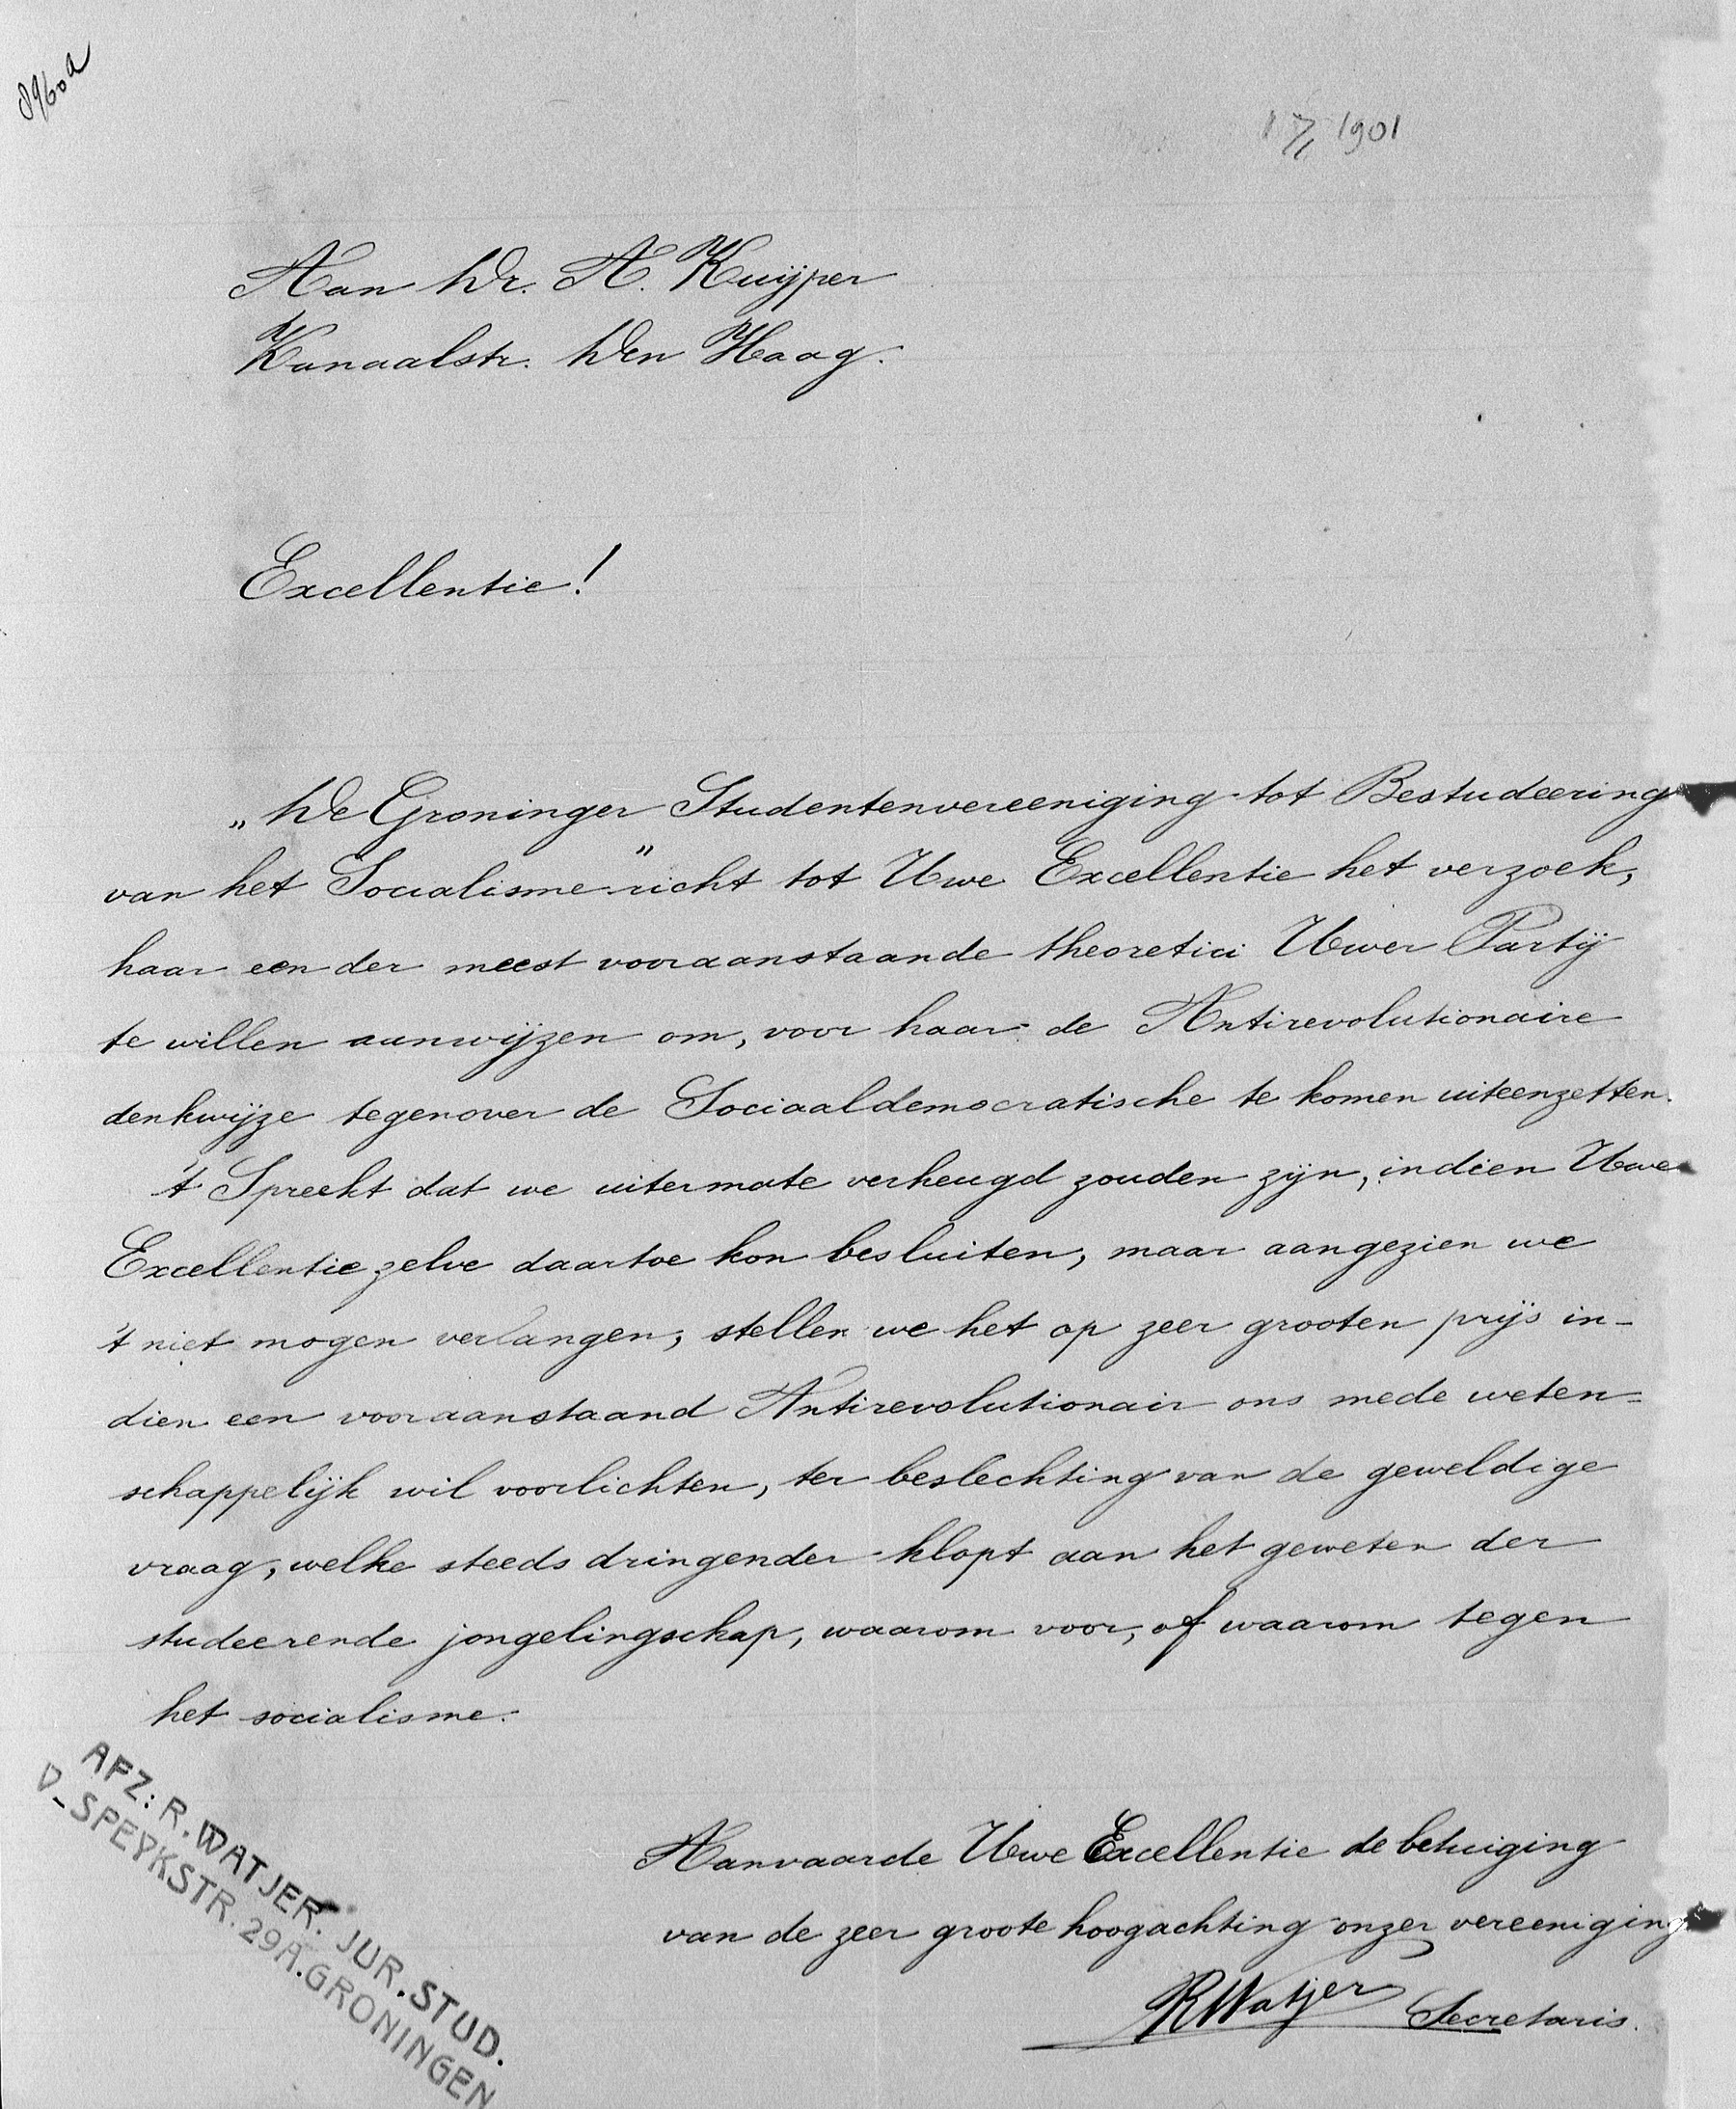 8960a
1901
Aan Dr. A. Kuijper
Kanaalstr. Den Haag.
Excellentie!
„De Groninger Studentenvereeniging tot Bestudeering
van het Socialisme" richt tot Uwe Excellentie het verzoek,
haar een der meest vooraanstaande theoretici Uwer Partij
te willen aanwijzen om, voor haar de Antirevolutionaire
denkwijze tegenover de Sociaaldemocratische te komen uiteenzetten.
't Spreekt dat we uitermate verheugd zouden zijn, indien Uwe
Excellentie zelve daartoe kon besluiten, maar aangezien we
't niet mogen verlangen, stellen we het op zeer grooten prijs in-
dien een vooraanstaand Antirevolutionair ons mede weten=
schappelijk wil voorlichten, ter beslechting van de geweldige
vraag, welke steeds dringender klopt aan het geweten der
studeerende jongelingschap, waarom voor, of waarom tegen
het socialisme.
Aanvaarde Uwe Excellentie de betuiging
van de zeer groote hoogachting onzer vereeniging
RWatjer Secretaris.
AFZ: R. WATJER. JUR. STUD.
V-SPEYKSTR. 29A. GRONINGEN